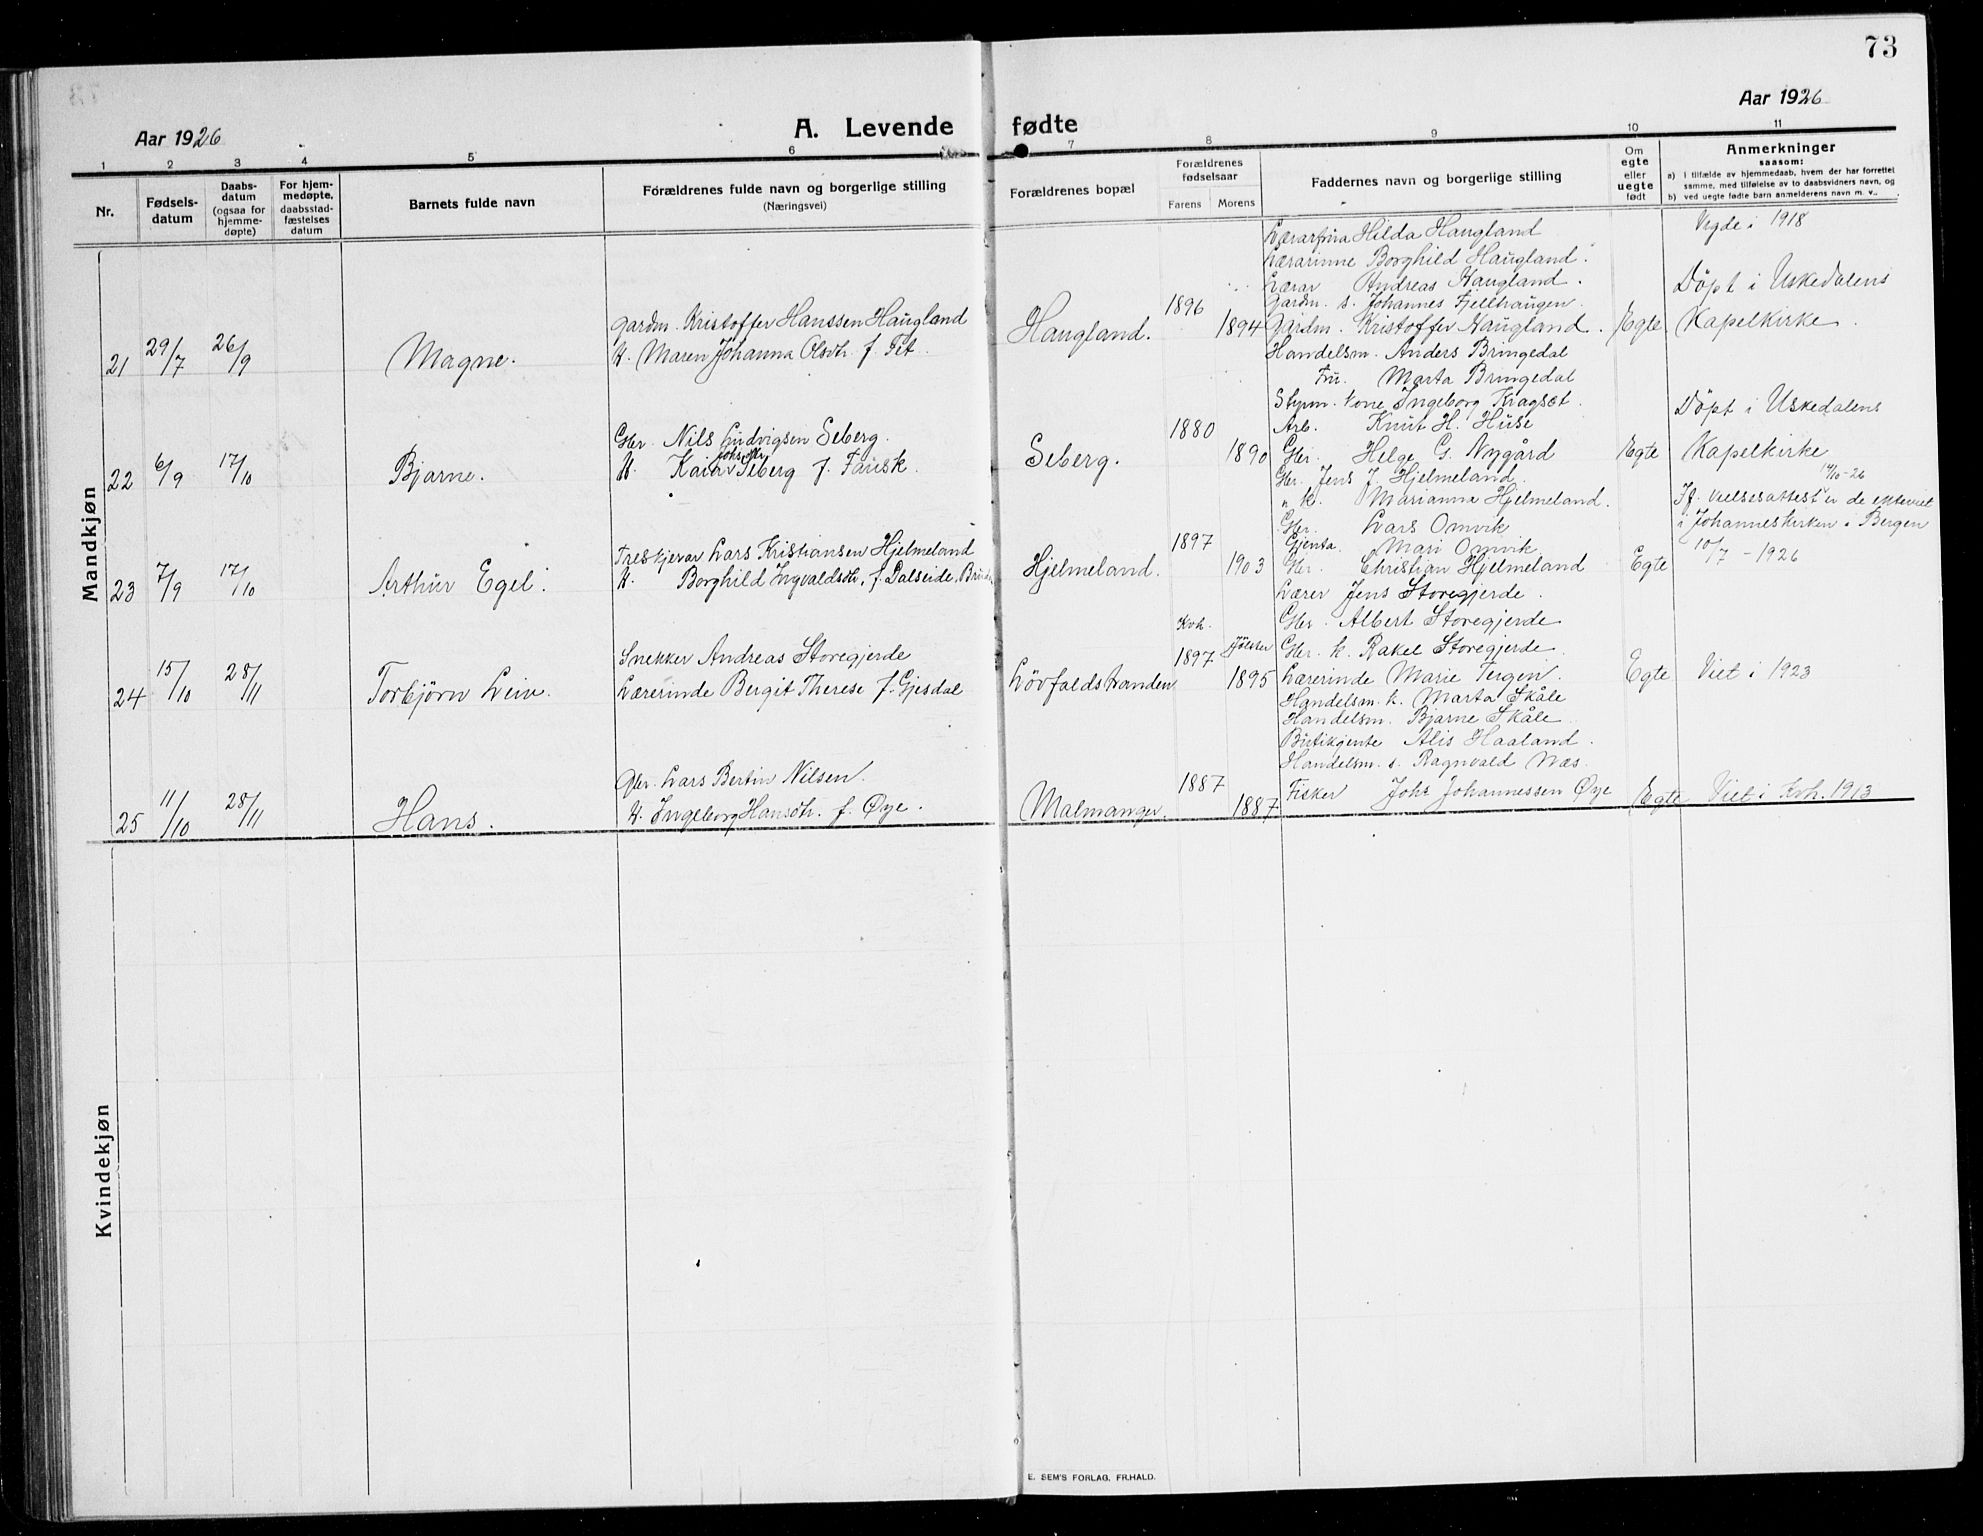 73
Aar 1926
Aar 1926
A. Levende fødte
1 2 3 4 5 6 7 8 9 10 11
Nr.
Fødsels-
datum
Daabs-
datum
(ogsaa for
hjemme-
døpte)
For hjem-
medøpte,
daabsstad-
fæstelses
datum
Barnets fulde navn
Forældrenes fulde navn og borgerlige stilling
(Næringsvei)
Forældrenes bopæl
Forældrenes
fødselsaar
Farens Morens
Faddernes navn og borgerlige stilling
Om
egte
eller
uegte
født
Anmerkninger
saasom:
a) i tilfælde av hjemmedaab, hvem der har forrettet
samme, med tilføielse av to daabsvidners navn, og
b) ved uegte fødte barn anmelderens navn m. v..
Mandkjøn
21 29/7 26/9 Magne.
Gardm. Kristoffer Hanssen Haugland
K. Maren Johanna Olsdtr. f. Fet.
Haugland. 1896 1894
Lærarfrua Hilda Haugland
Lærarinne Borghild Haugland.
Lærar Andreas Haugland.
Gardm. s. Johannes Fjellhaugen.
Gardm. Kristoffer Haugland.
Egte
Vigde i 1918
Döpt i Uskedalens
Kapelkirke.
22 6/9 17/10 Bjarne.
Gbr. Nils Ludvigsen Seberg.
K. Kari Seberg f.
Seberg. 1880 1890
Handelsm. Anders Bringedal
Fru. Marta Bringedal
Styrm. kone Ingeborg Kragset.
Arb. Knut H. Huse
Gbr. Helge G. Nygård
Egte
Döpt i Uskedalens
Kapelkirke
23 7/9 17/10 Arthur Egel.
Treskjerar Lars Kristiansen Hjelmeland
K. Borghild Ingvaldsdtr. f. Dalseide,
Hjelmeland. 1897 1903
Gbr. Jens J. Hjelmeland.
" k. Marianna Hjelmeland.
Gbr. Lars Omvik
Gjenta. Mari Omvik
Gbr. Christian Hjelmeland
Egte
17/10-26
If. vielsesattest er de ekteviet
i Johanneskirken i Bergen
10/7 - 1926
24 15/10 28/11 Torbjörn Leiv.
Snekker Andreas Storegjerde
Lærerinde Bergit Therese f. Gjesdal
Lövfaldstranden
Kvh.
1897
Jölster
1895
Lærer Jens Storegjerde.
Gbr. Albert Storegjerde
Gbr. k. Rakel Storegjerde.
Lærerinde Marie Tergen.
Egte Viet i 1923
25 11/10 28/11 Hans.
Gbr. Lars Bertin Nilsen.
K. Ingeborg Hansdtr. f. Øye.
Malmanger. 1887 1887
Handelsm. k. Marta Skåle
Handelsm. Bjarne Skåle
Butikjente Alis Haaland.
Handelsm. s. Ragnvald Næs.
Fisker Johs Johannessen Øye
Egte Viet i Kvh. 1913
Kvindekjøn
E. SEM'S FORLAG, FR.HALD.